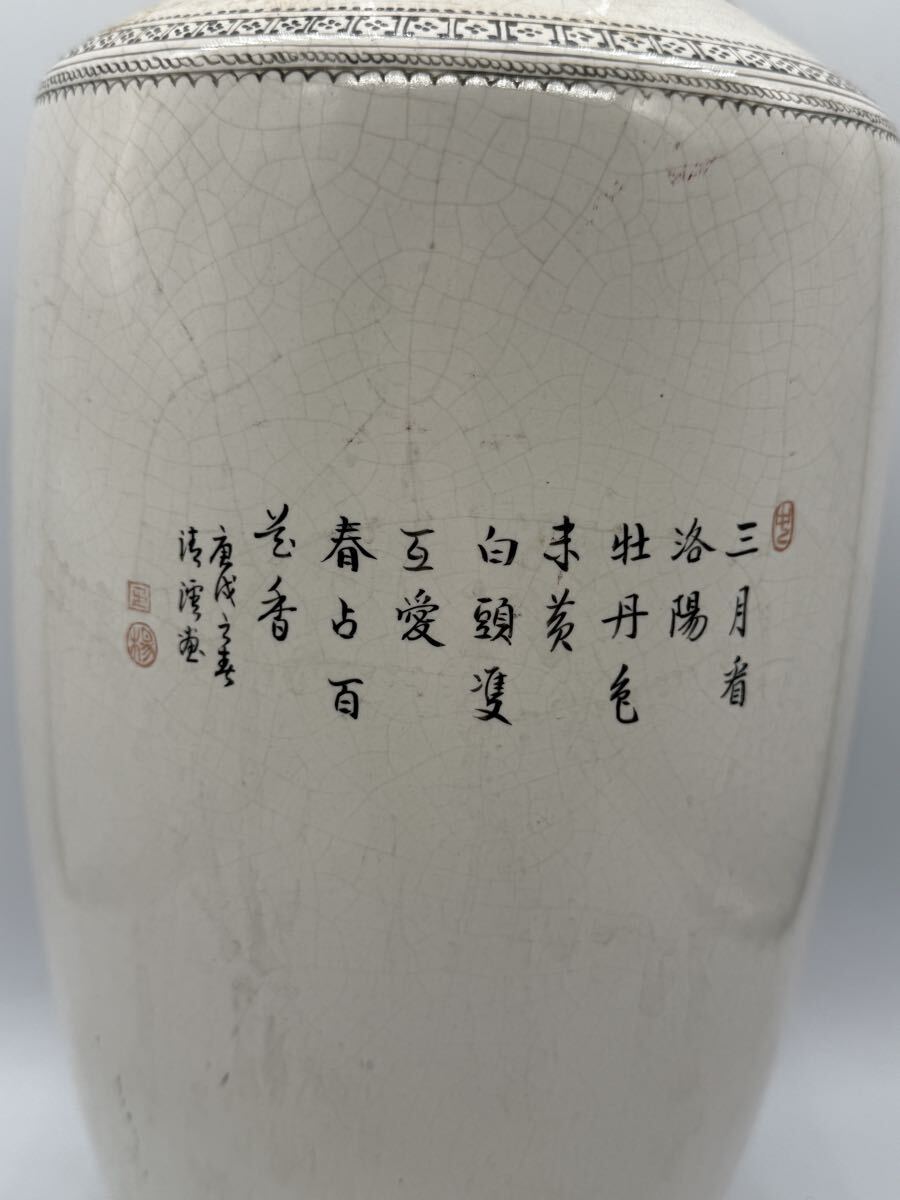 三月看
洛陽
牡丹色
未黄
白頭雙
互愛
春占百
花香
庚戌之春
清溪畫